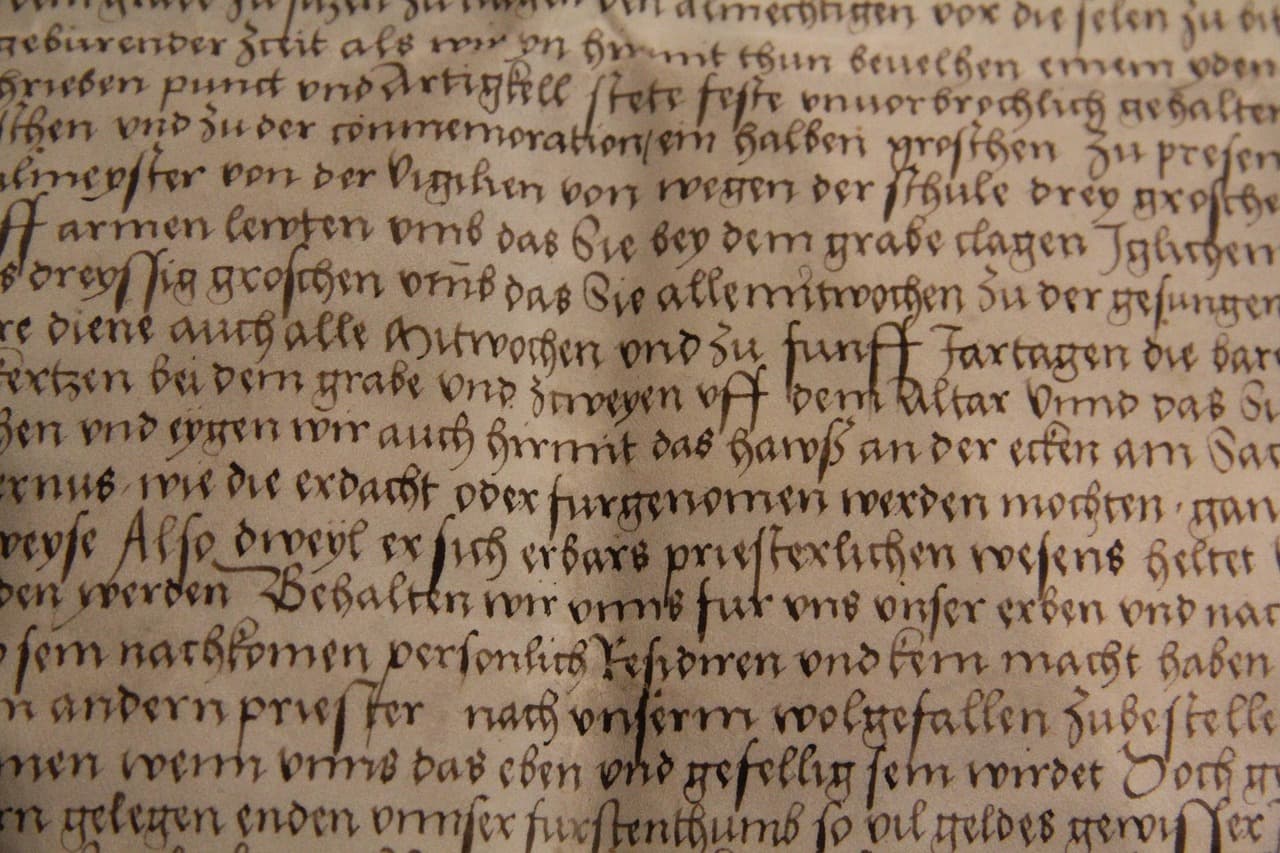 grabe zu sitzen zu den almechtigen vor die selen zu bit
geburender Zceit als wir yn hirmit thun beuelhen einem yden
hrieben punct vnd Artigkell stete feste vnuorbrochlich gehalten
schen vnd zu der commemoration/ein halben groschen zu presen
ulmeyster von der Vigilien von wegen der schule drey grosche
ff armen lewten vmb das Sie bey dem grabe clagen Iglichen
s dreyssig groschen vmb das Sie alle mitwochen zu der gesungen
re diene auch alle Mitwochen vnd zu funff Jartagen die bar
kertzen bei dem grabe vnd zcweyen vff dem Altar Vnnd das Si
hen vnd eygen wir auch hirmit das hawß an der ecken am Sac
ernus wie die erdacht oder furgenomen werden mochten · gan
weyse Also dweyl er sich erbars priesterlichen wesens heltet
den werden Behalten wir vnns fur vns vnser erben vnd nac
sein nachkomen personlich Residiren vnd kein macht haben
n andern priester nach vnserm wolgefallen zubestelle
men wenn vnns das eben vnd gefellig sein wirdet Doch ge
rn gelegen enden vnnser furstenthumb so vil geldes gewisser